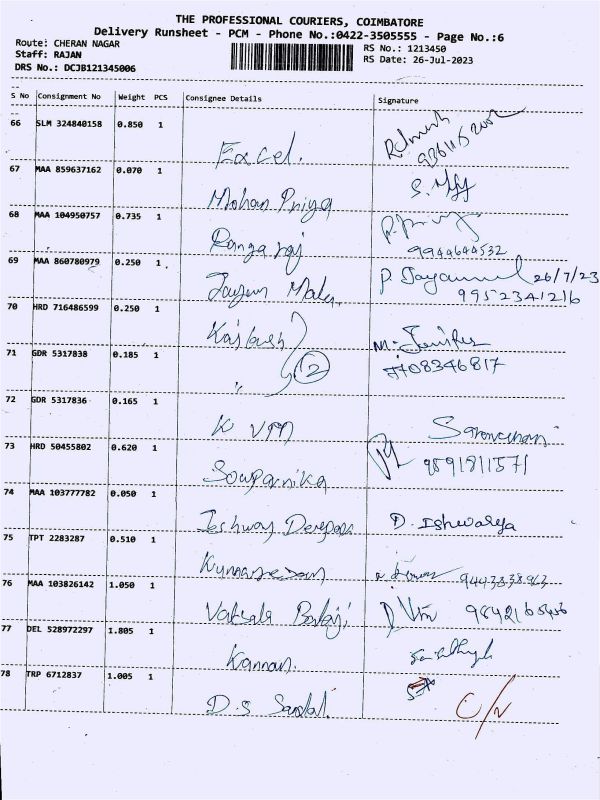 THE PROFESSIONAL COURIERS, COIMBATORE
Delivery Runsheet - PCM - Phone No.:0422-3505555 - Page No.:6
Route: CHERAN NAGAR RS No.: 1213450
Staff: RAJAN RS Date: 26-Jul-2023
DRS No.: DCJB121345006
S No Consignment No Weight PCS Consignee Details Signature
66 SLM 324840158 0.850 1
Excel.
67 MAA 859637162 0.070 1
Mohan Priya
68 MAA 104950757 0.735 1
Ranga raj 9944644532
69 MAA 860780979 0.250 1
P. 26/7/23
9952341216
70 HRD 716486599 0.250 1
Kailash
M. Jenifer
7708346817
71 GDR 5317838 0.185 1
" 2
72 GDR 5317836 0.165 1
K VM
73 HRD 50455802 0.620 1
9591811571
Souparnika
74 MAA 103777782 0.050 1
D. Ishwarya
75 TPT 2283287 0.510 1
Kumaresan
76 MAA 103826142 1.050 1
Vatsala Balaji
77 DEL 528972297 1.805 1
Kannan.
78 TRP 6712837 1.005 1
D.S C/N